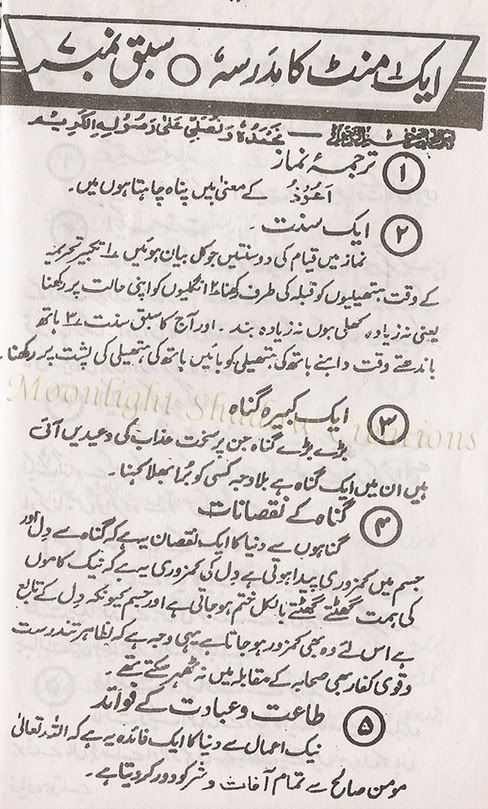 ایک منٹ کا مدرسہ ○ سبق نمبر ۷
نَحْمَدُہٗ وَنُصَلِّیْ عَلٰی رَسُوْلِہِ الْکَرِیْمِ
۱ ترجمۂ نماز
اَعُوْذُ کے معنیٰ میں پناہ چاہتا ہوں میں۔
۲ ایک سنت۔
نماز میں قیام کی دو سنتیں جو کل بیان ہوئیں ۱؎ تکبیر تحریمہ
کے وقت ہتھیلیوں کو قبلہ کی طرف رکھنا ۲؎ انگلیوں کو اپنی حالت پر رکھنا
یعنی نہ زیادہ کھلی ہوں نہ زیادہ بند۔ اور آج کا سبق سنت ۳؎ ہاتھ
باندھتے وقت داہنے ہاتھ کی ہتھیلی کو بائیں ہاتھ کی ہتھیلی کی پشت پر رکھنا۔
Moonlight Shadow Creations
۳ ایک کبیرہ گناہ
بڑے بڑے گناہ جن پر سخت عذاب کی وعیدیں آئی
ہیں ان میں ایک گناہ ہے بلا وجہ کسی کو برا بھلا کہنا۔
۴ گناہ کے نقصانات
گناہوں سے دنیا کا ایک نقصان یہ ہے کہ گناہ سے دل اور
جسم میں کمزوری پیدا ہوتی ہے دل کی کمزوری یہ ہے کہ نیک کاموں
کی ہمت گھٹتے گھٹتے بالکل ختم ہو جاتی ہے اور جسم کیونکہ دل کے تابع
ہے اس لئے وہ بھی کمزور ہو جاتا ہے یہی وجہ ہے کہ بظاہر تندرست
و قوی کفار بھی صحابہ کے مقابلہ میں نہ ٹھہر سکتے تھے۔
۵ طاعت و عبادت کے فوائد
نیک اعمال سے دنیا کا ایک فائدہ یہ ہے کہ اللہ تعالیٰ
مومن صالح سے تمام آفات و شر کو دور کر دیتا ہے۔